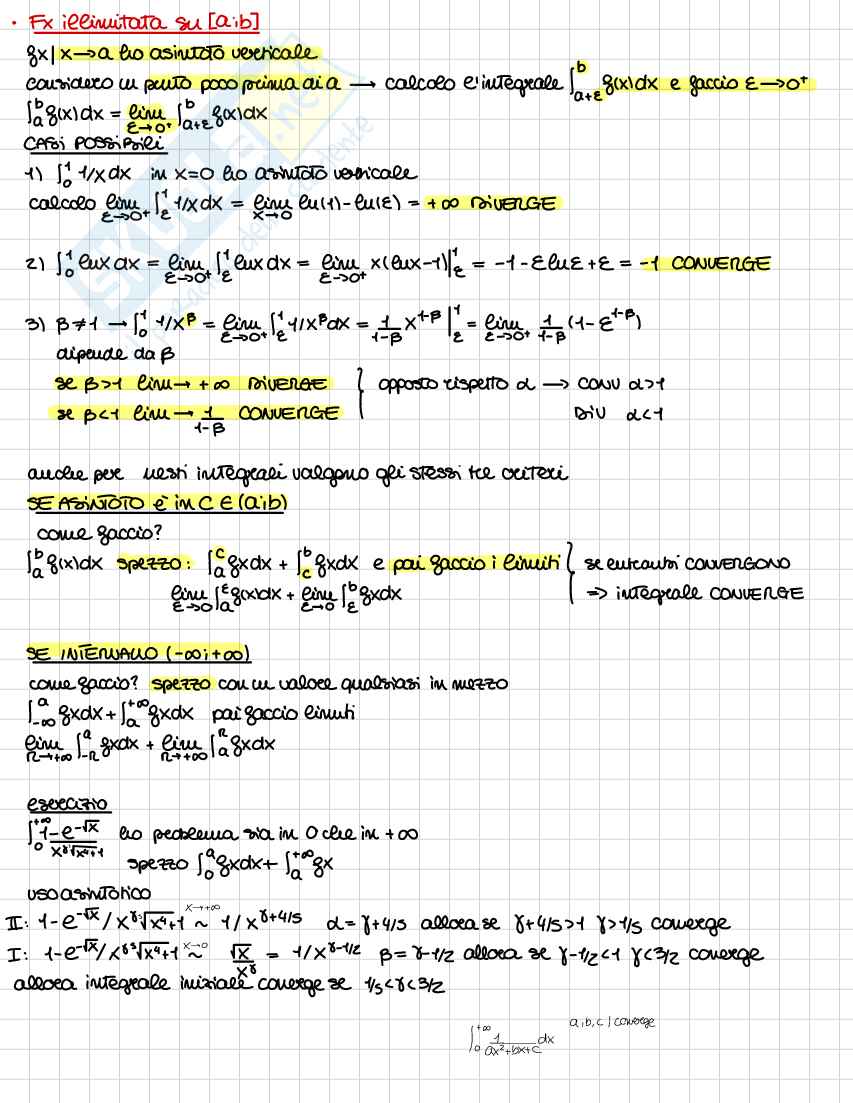 • Fx illimitata su [a;b]
fx | x→a ho asintoto verticale
considero un punto poco prima di a → calcolo l'integrale ∫_{a+ε}^{b} f(x)dx e faccio ε→0⁺
∫_a^b f(x)dx = lim_{ε→0⁺} ∫_{a+ε}^b f(x)dx
CASI POSSIBILI
1) ∫_0^1 1/x dx in x=0 ho asintoto verticale
calcolo lim_{ε→0⁺} ∫_ε^1 1/x dx = lim_{x→0} ln(1) - ln(ε) = +∞ DIVERGE
2) ∫_0^1 lnx dx = lim_{ε→0⁺} ∫_ε^1 lnx dx = lim_{ε→0⁺} x(lnx-1)|_ε^1 = -1 - εlnε + ε = -1 CONVERGE
3) β≠1 → ∫_0^1 1/x^β = lim_{ε→0⁺} ∫_ε^1 1/x^β dx = 1/(1-β) x^{1-β} |_ε^1 = lim_{ε→0⁺} 1/(1-β) (1-ε^{1-β})
dipende da β
se β>1 lim → +∞ DIVERGE } opposto rispetto α → CONV α>1
se β<1 lim → 1/(1-β) CONVERGE DIV α<1
anche per questi integrali valgono gli stessi tre criteri
SE ASINTOTO è in C ∈ (a;b)
come faccio?
∫_a^b f(x)dx spezzo: ∫_a^c fxdx + ∫_c^b fxdx e poi faccio i limiti } se entrambi CONVERGONO
lim_{ε→0} ∫_a^ε f(x)dx + lim_{ε→0} ∫_ε^b fxdx => integrale CONVERGE
SE INTERVALLO (-∞;+∞)
come faccio? spezzo con un valore qualsiasi in mezzo
∫_{-∞}^a fxdx + ∫_a^{+∞} fxdx poi faccio limiti
lim_{r→+∞} ∫_{-r}^a fxdx + lim_{r→+∞} ∫_a^r fxdx
esercizio
∫_0^{+∞} (1-e^{-√x})/(x^γ ⁵√(x⁴+1)) ho problema sia in 0 che in +∞
spezzo ∫_0^a fxdx + ∫_a^{+∞} fx
uso asintotico
II: 1-e^{-√x} / x^γ ⁵√(x⁴+1) ~^{x→+∞} 1/x^{γ+4/5} α = γ+4/5 allora se γ+4/5>1 γ>1/5 converge
I: 1-e^{-√x} / x^γ ⁵√(x⁴+1) ~^{x→0} √x/x^γ = 1/x^{γ-1/2} β=γ-1/2 allora se γ-1/2<1 γ<3/2 converge
allora integrale iniziale converge se 1/5<γ<3/2
∫_0^{+∞} 1/(ax²+bx+c) dx a,b,c | converge